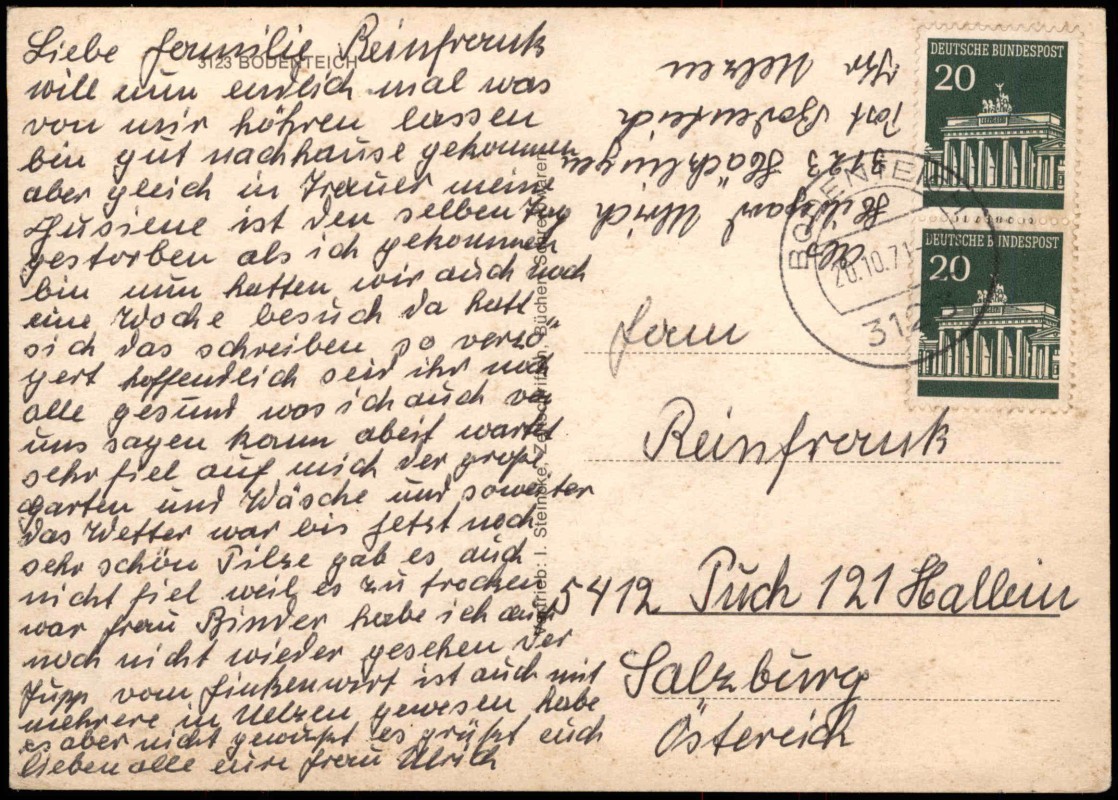 3123 BODENTEICH
Liebe Familie Reinfrank
will nun endlich mal was
von mir höhren lassen
bin gut nachhause gekommen
aber gleich in Trauer meine
ist den selben Tag
gestorben als ich gekommen
bin nun hatten wir auch noch
eine Woche besuch da hatt
sich das schreiben so verzö
gert hoffendlich seid ihr noch
alle gesund was ich auch von
uns sagen kann abeit wartet
sehr fiel auf mich der große
garten und Wäsche und soweiter
das Wetter war bis jetzt noch
sehr schön Pilze gab es auch
nicht fiel weil es zu trocken
war frau Binder habe ich auch
noch nicht wieder gesehen der
Jupp vom Finkenwirt ist auch mit
mehrere in Uelzen gewesen habe
es aber nicht gewußt es grüßt euch
lieben alle eure frau Ulrich
Vertrieb: I. Steincke, Zeitschriften, Bücher, Schreibwaren
Ulrich
3123 Häcklingen
Post Bodenteich
Kr Uelzen
DEUTSCHE BUNDESPOST
20
DEUTSCHE BUNDESPOST
20
BODENTEICH
20.10.71
312
Fam
Reinfrank
5412 Puch 121 Hallein
Salzburg
Österreich